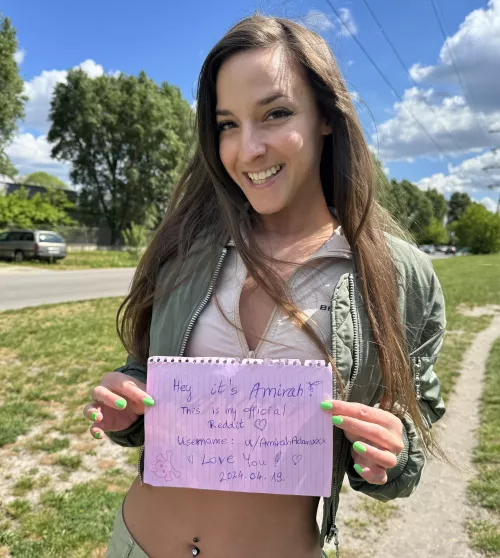 Hey it's Amirah!
This is my official
Reddit ♡
Username: u/AmirahAdaraxxx
I Love You! ♡
2024.04.19.